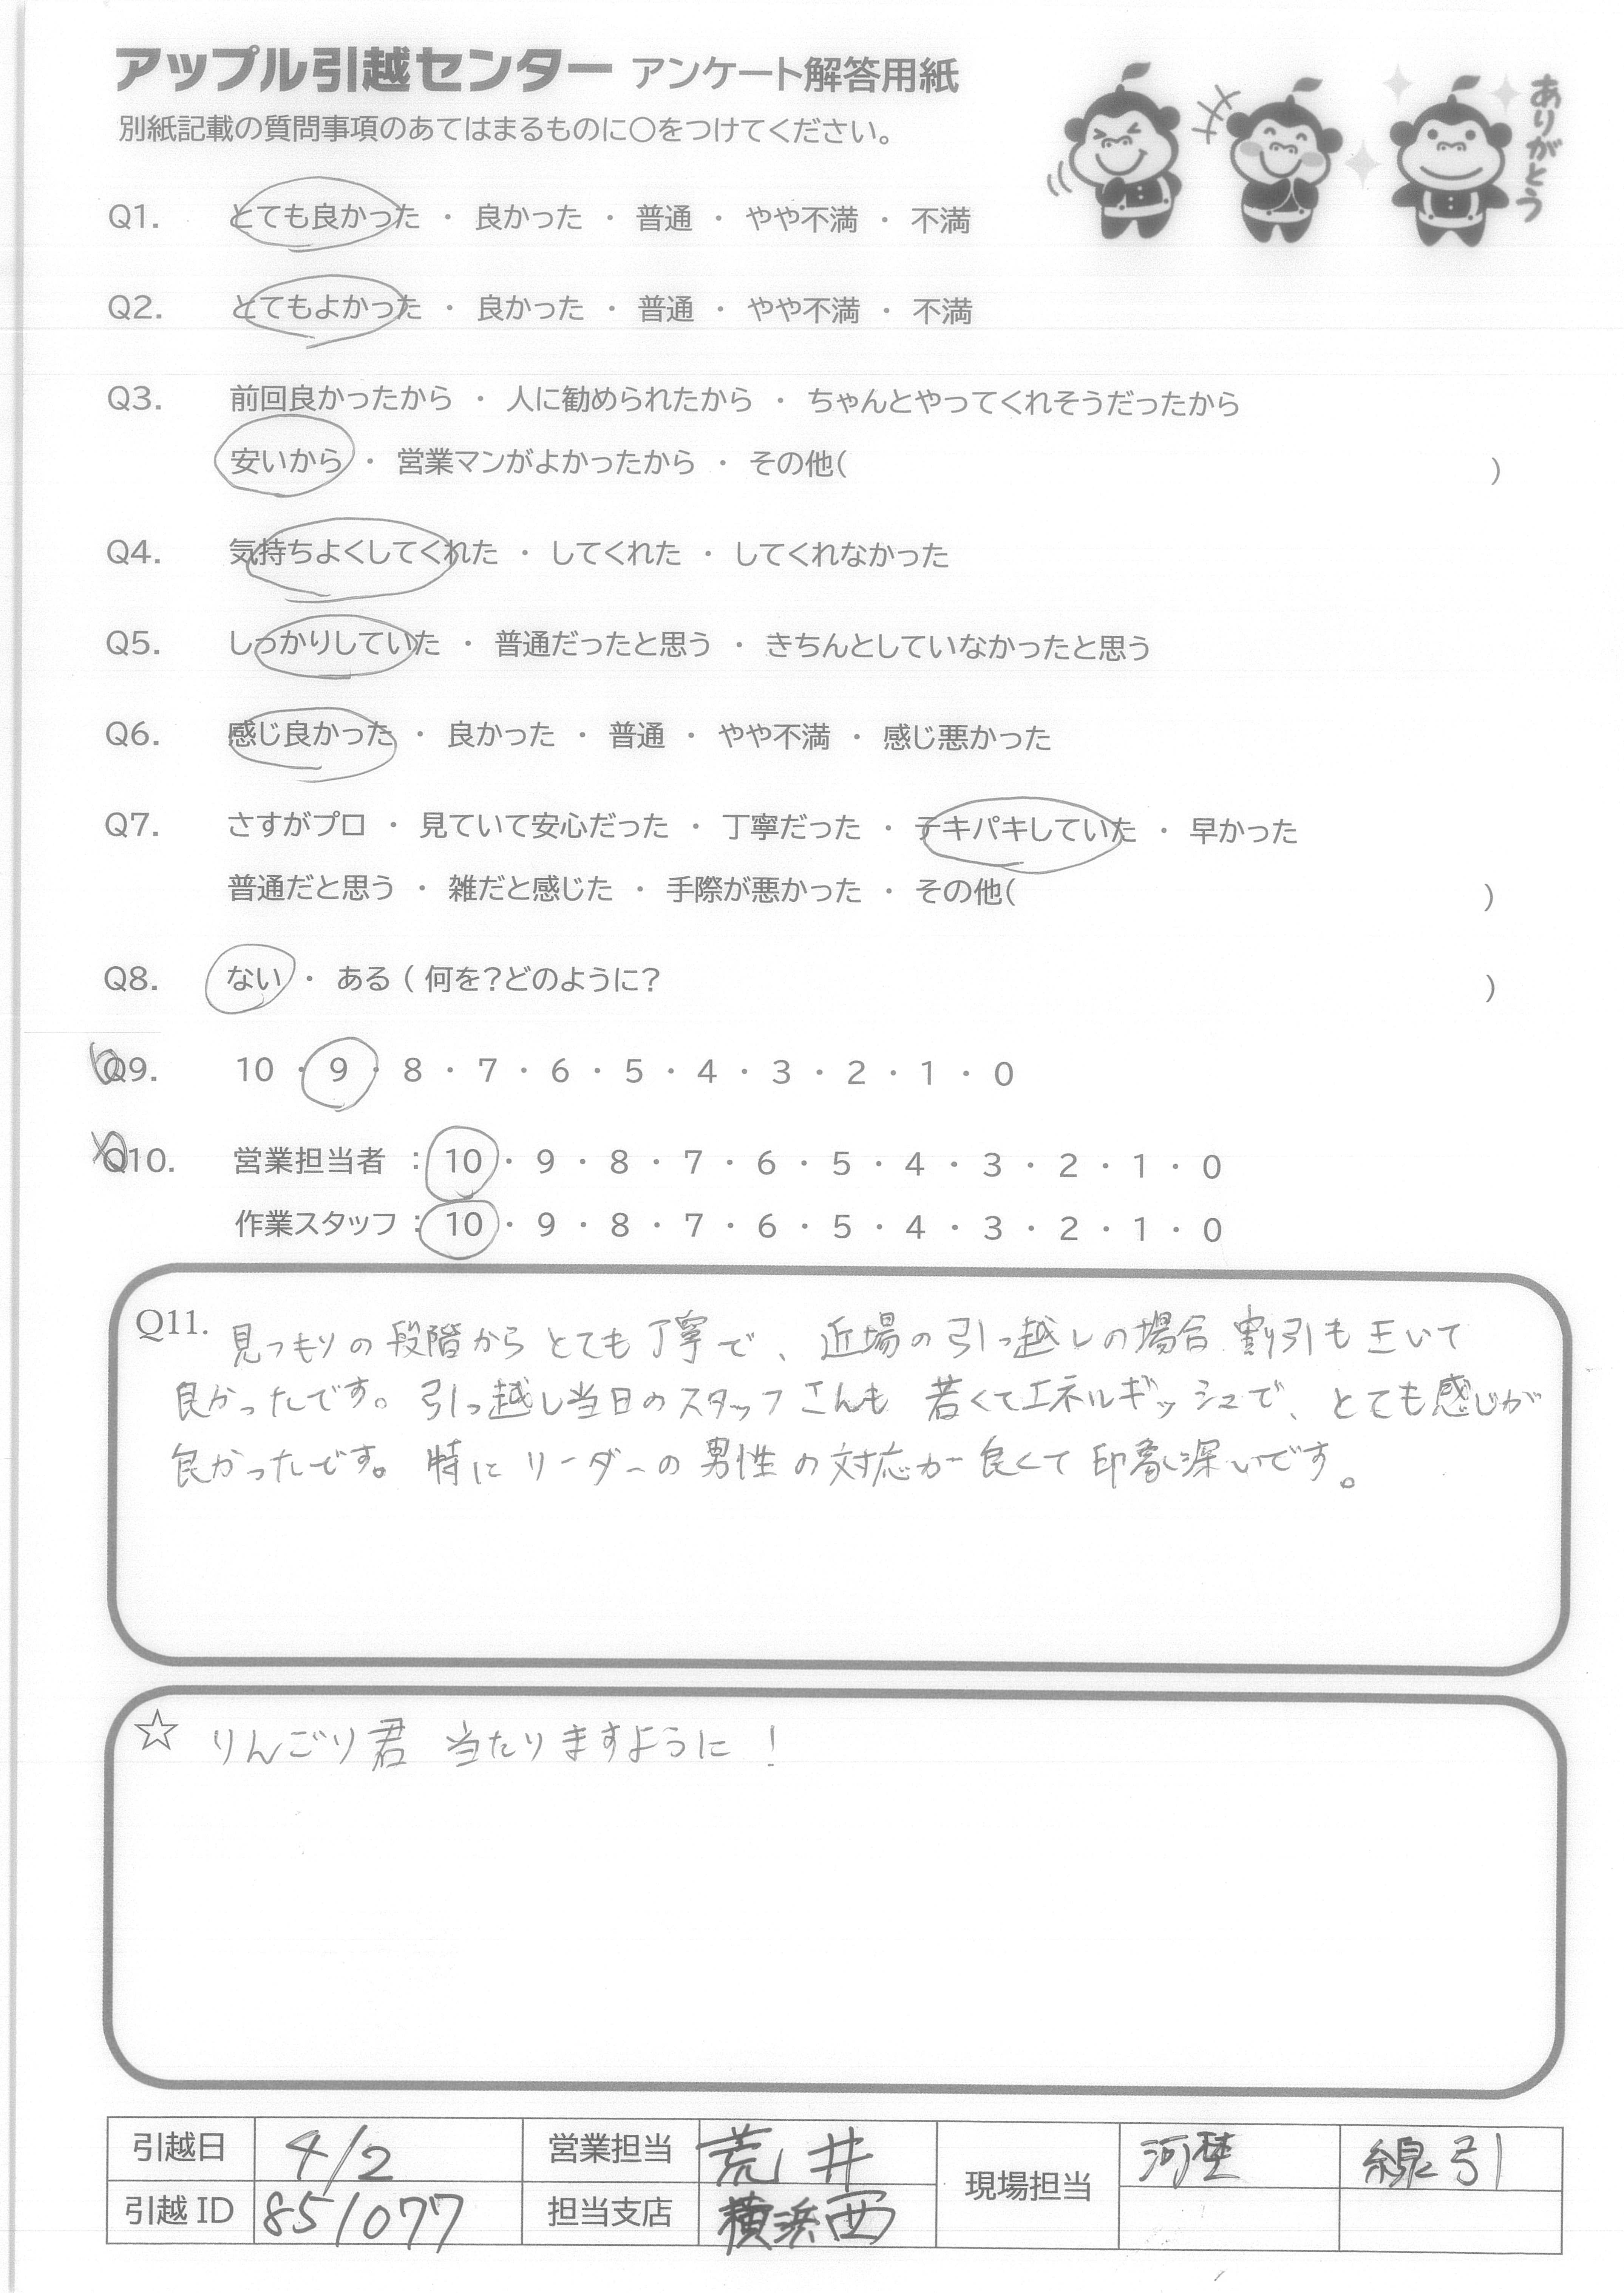 アップル引越センター アンケート解答用紙
別紙記載の質問事項のあてはまるものに○をつけてください。
ありがとう
Q1. とても良かった ・ 良かった ・ 普通 ・ やや不満 ・ 不満
Q2. とてもよかった ・ 良かった ・ 普通 ・ やや不満 ・ 不満
Q3. 前回良かったから ・ 人に勧められたから ・ ちゃんとやってくれそうだったから
安いから ・ 営業マンがよかったから ・ その他( )
Q4. 気持ちよくしてくれた ・ してくれた ・ してくれなかった
Q5. しっかりしていた ・ 普通だったと思う ・ きちんとしていなかったと思う
Q6. 感じ良かった ・ 良かった ・ 普通 ・ やや不満 ・ 感じ悪かった
Q7. さすがプロ ・ 見ていて安心だった ・ 丁寧だった ・ テキパキしていた ・ 早かった
普通だと思う ・ 雑だと感じた ・ 手際が悪かった ・ その他( )
Q8. ない ・ ある ( 何を?どのように? )
Q9. 10 ・ 9 ・ 8 ・ 7 ・ 6 ・ 5 ・ 4 ・ 3 ・ 2 ・ 1 ・ 0
Q10. 営業担当者 : 10 ・ 9 ・ 8 ・ 7 ・ 6 ・ 5 ・ 4 ・ 3 ・ 2 ・ 1 ・ 0
作業スタッフ : 10 ・ 9 ・ 8 ・ 7 ・ 6 ・ 5 ・ 4 ・ 3 ・ 2 ・ 1 ・ 0
Q11. 見つもりの段階からとても丁寧で、近場の引っ越しの場合割引もきいて
良かったです。引っ越し当日のスタッフさんも若くてエネルギッシュで、とても感じが
良かったです。特にリーダーの男性の対応が良くて印象深いです。
☆ りんごり君 当たりますように!
引越日 4/2 営業担当 荒井 現場担当 線引
引越ID 851077 担当支店 横浜西